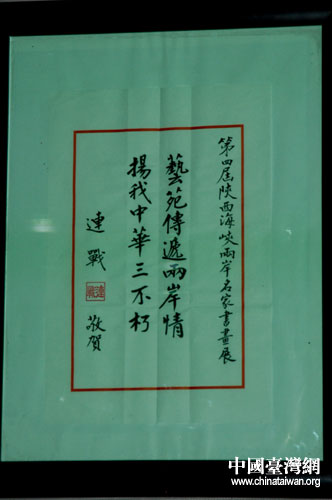 第四届陝西海峽兩岸名家書畫展
藝苑傳遞兩岸情
揚我中華三不朽
連戰
連戰
敬賀
中國臺灣網
www.chinataiwan.org